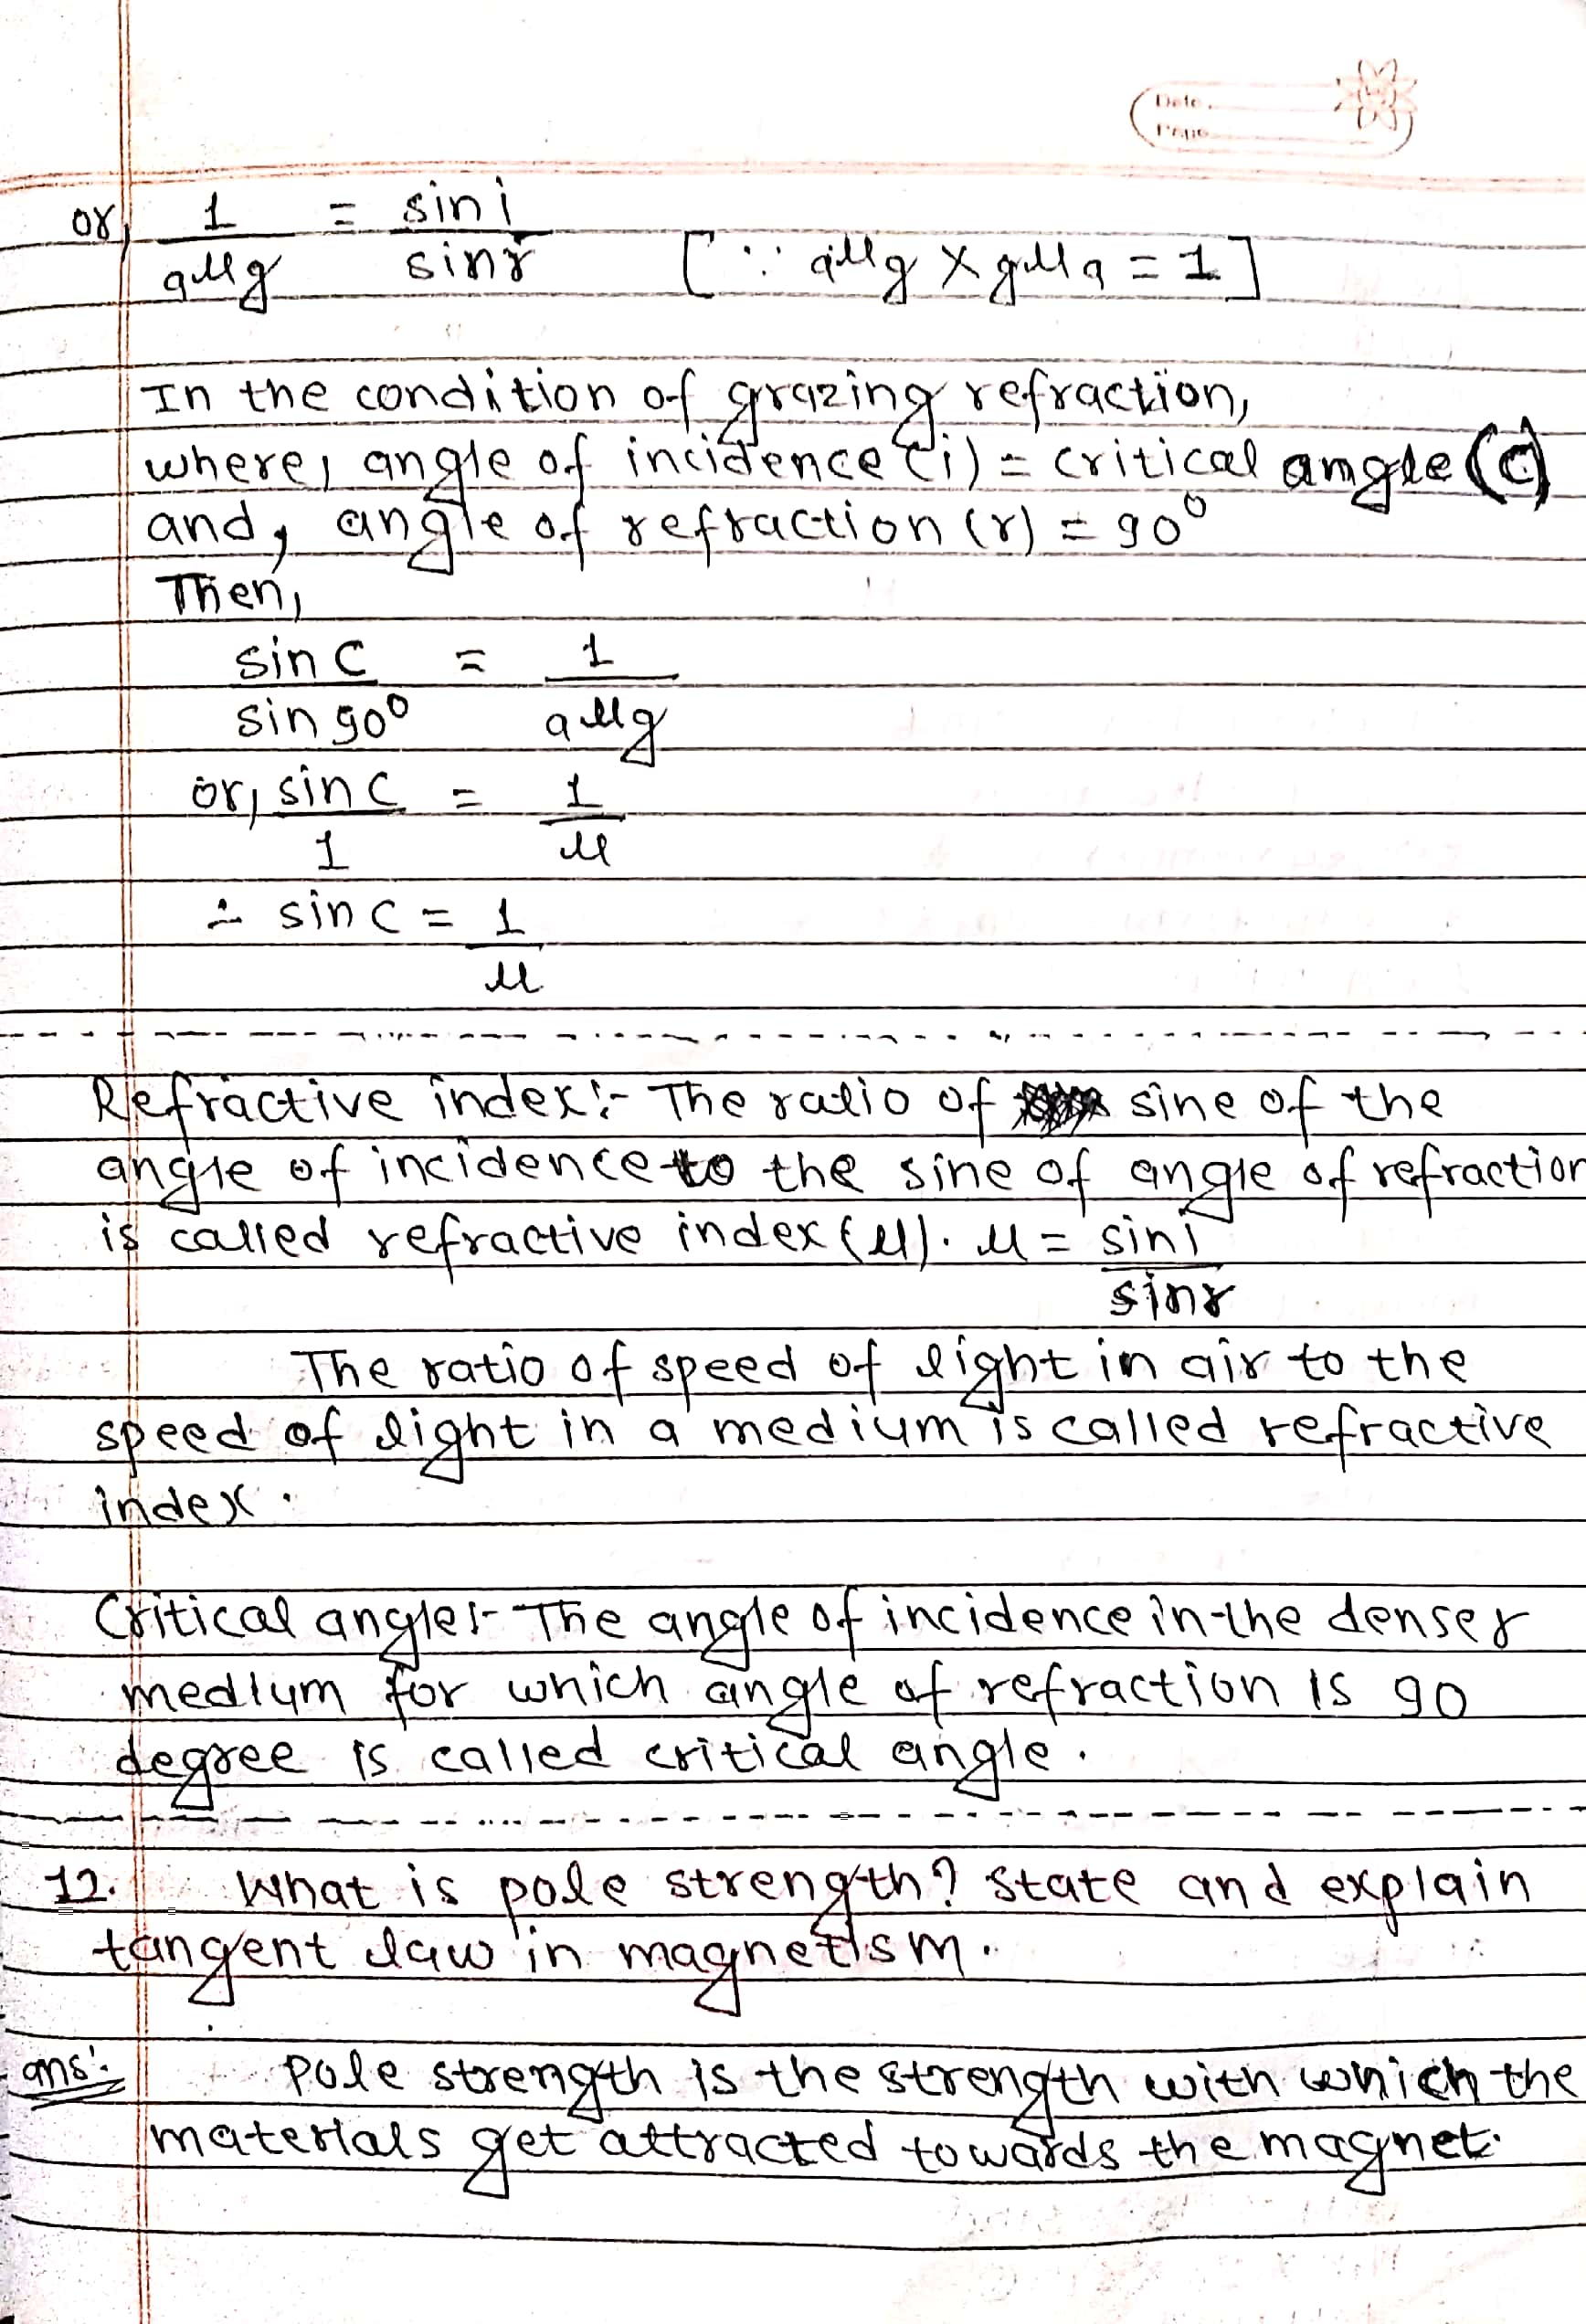 Date.
Page
or, 1/aμg = sin i/sin r [∵ aμg × gμa = 1]
In the condition of grazing refraction,
where, angle of incidence (i) = critical angle (c)
and, angle of refraction (r) = 90°
Then,
sin c/sin 90° = 1/aμg
or, sin c/1 = 1/μ
∴ sin c = 1/μ
Refractive index:- The ratio of sine of the
angle of incidence to the sine of angle of refraction
is called refractive index (μ). μ = sin i/sin r
The ratio of speed of light in air to the
speed of light in a medium is called refractive
index.
Critical angle:- The angle of incidence in the denser
medium for which angle of refraction is 90
degree is called critical angle.
12. What is pole strength? State and explain
tangent law in magnetism.
ans: Pole strength is the strength with which the
materials get attracted towards the magnet.